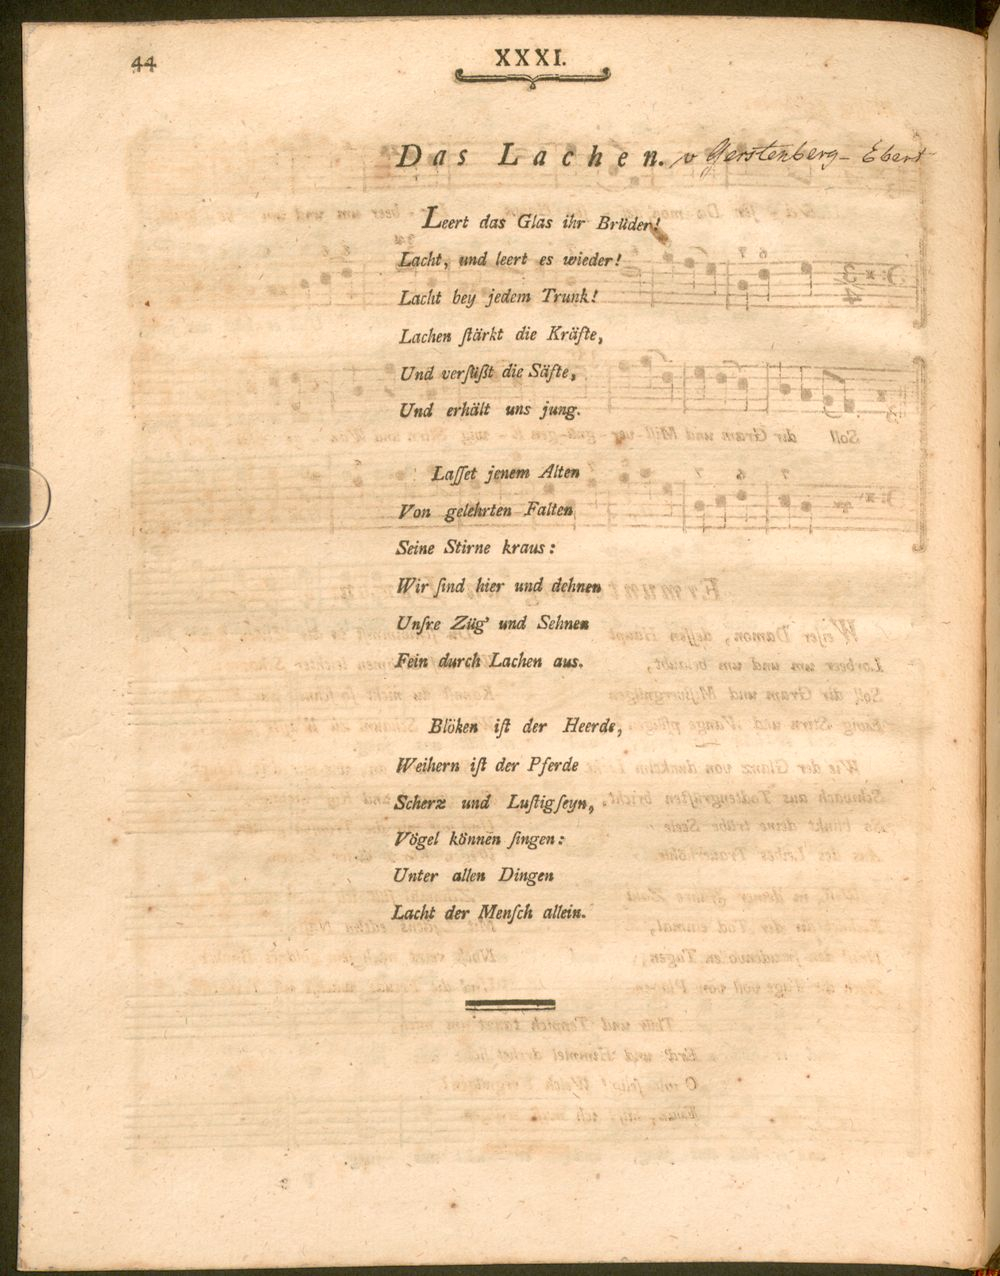 44
XXXI.
Das Lachen. v Gerstenberg - Ebert
Leert das Glas ihr Brüder!
Lacht, und leert es wieder!
Lacht bey jedem Trunk!
Lachen ſtärkt die Kräfte,
Und verſüßt die Säfte,
Und erhält uns jung.
Laſſet jenem Alten
Von gelehrten Falten
Seine Stirne kraus:
Wir ſind hier und dehnen
Unſre Züg' und Sehnen
Fein durch Lachen aus.
Blöken iſt der Heerde,
Weihern iſt der Pferde
Scherz und Luſtigſeyn,
Vögel können ſingen:
Unter allen Dingen
Lacht der Menſch allein.